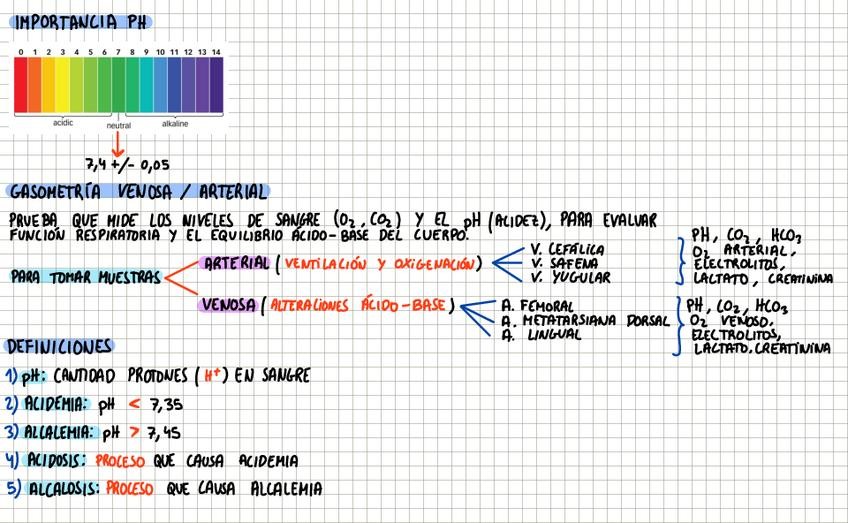 IMPORTANCIA PH
0 1 2 3 4 5 6 7 8 9 10 11 12 13 14
acidic neutral alkaline
7,4 +/- 0,05
GASOMETRÍA VENOSA / ARTERIAL
PRUEBA QUE MIDE LOS NIVELES DE SANGRE (O₂, CO₂) Y EL pH (ACIDEZ), PARA EVALUAR
FUNCIÓN RESPIRATORIA Y EL EQUILIBRIO ÁCIDO-BASE DEL CUERPO.
PARA TOMAR MUESTRAS
ARTERIAL (VENTILACIÓN Y OXIGENACIÓN)
V. CEFÁLICA
V. SAFENA
V. YUGULAR
PH, CO₂, HCO₃
O₂ ARTERIAL,
ELECTROLITOS,
LACTATO, CREATININA
VENOSA (ALTERACIONES ÁCIDO-BASE)
A. FEMORAL
A. METATARSIANA DORSAL
A. LINGUAL
PH, CO₂, HCO₃
O₂ VENOSO,
ELECTROLITOS,
LACTATO, CREATININA
DEFINICIONES
1) pH: CANTIDAD PROTONES (H⁺) EN SANGRE
2) ACIDEMIA: pH < 7,35
3) ALCALEMIA: pH > 7,45
4) ACIDOSIS: PROCESO QUE CAUSA ACIDEMIA
5) ALCALOSIS: PROCESO QUE CAUSA ALCALEMIA